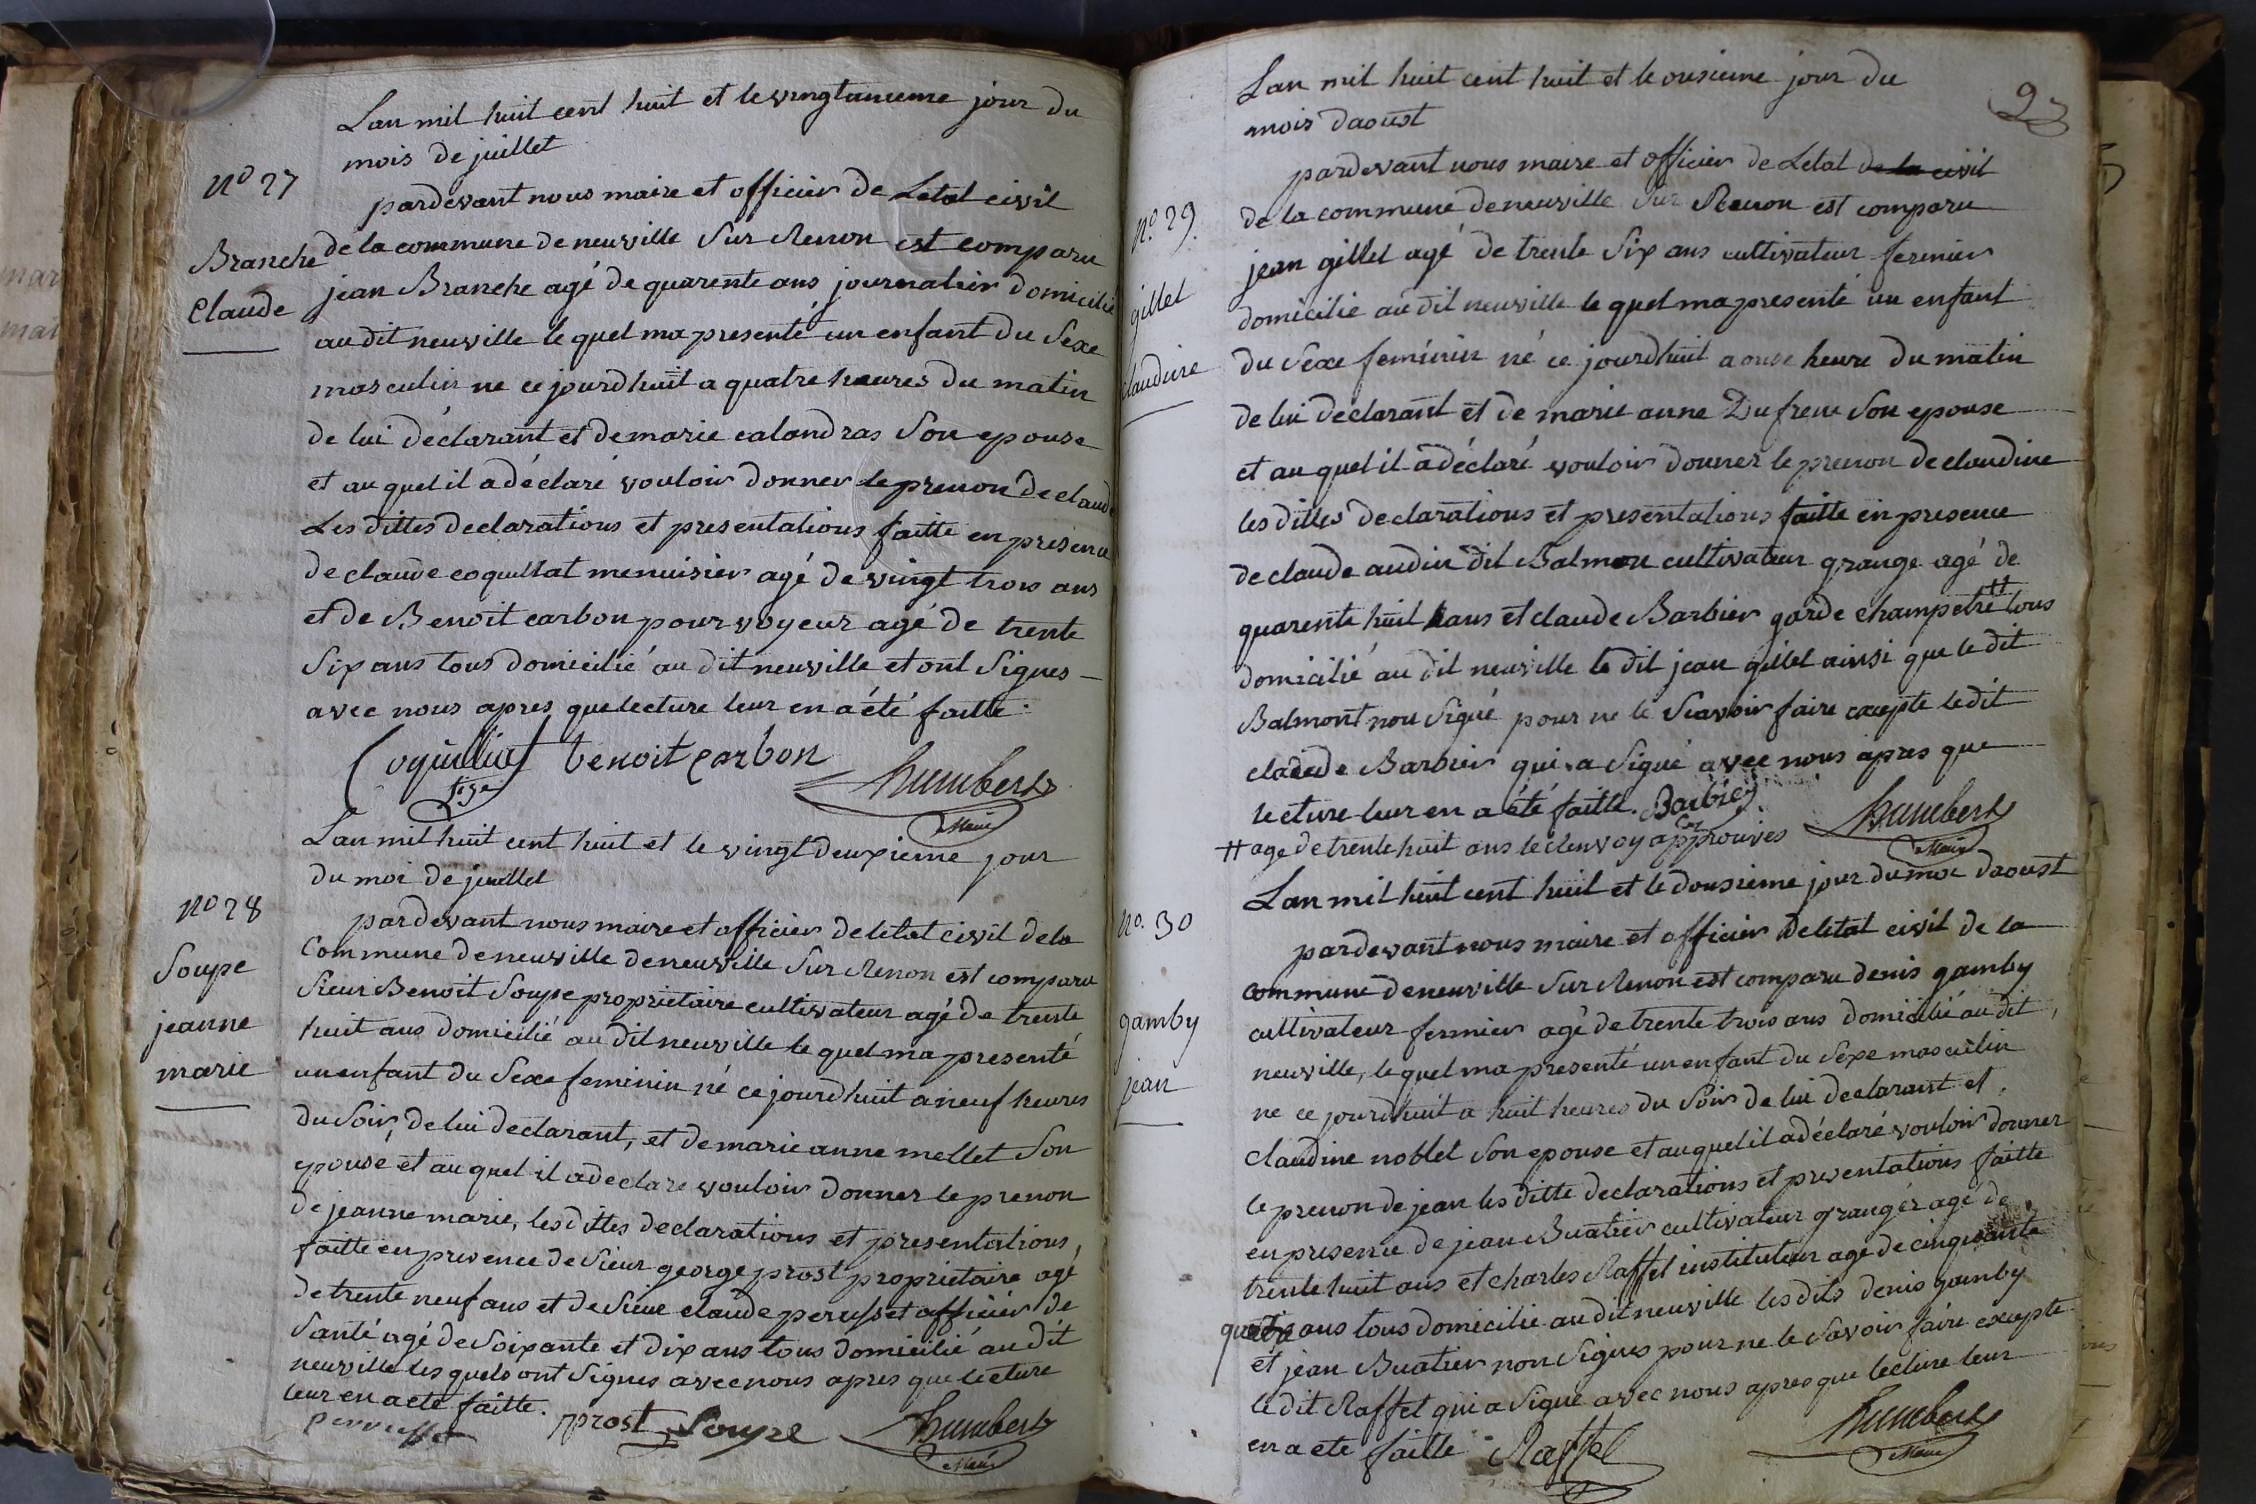 Lan mil huit cent huit et le vingtunieme jour du
mois de juillet
No 27
pardevant nous maire et officier de Letat civil
Branche
de la commune de neuville Sur Renon est comparu
Claude
jean Branche agé de quarente ans journalier domicilié
au dit neuville le quel ma presenté un enfant du Sexe
masculin ne ce jourdhuit a quatre heures du matin
de lui déclarant et de marie calandras Son epouse
et au quel il a déclaré vouloir donner le prenon de claude
Les dittes declarations et presentations faitte en presence
de claude coquillat menuisier agé de vingt trois ans
et de Benoit carbon pourvoyeur agé de trente
Six ans tous domicilié au dit neuville et ont Signes
avec nous apres que lecture leur en a été faitte.
Coquilliat benoit carbon
humbert
Maire
Lan mil huit cent huit et le vingt deuxieme jour
du moi de juillet
No 28
pardevant nous maire et officier de letat civil de la
Soupe
Commune de neuville de neuville Sur Renon est comparu
jeanne
Sieur Benoit Soupe proprietaire cultivateur agé de trente
marie
huit ans domicilié au dit neuville le quel ma presenté
un enfant du Sexe feminin né ce jourdhuit a neuf heures
du Soir, de lui declarant, et de marie anne mellet Son
epouse et au quel il a declare vouloir donner le prenon
de jeanne marie, les dittes declarations et presentations,
faitte en presence de Sieur george prost proprietaire agé
de trente neuf ans et de Sieur claude perusset officier de
Santé agé de Soixante et dix ans tous domicilié au dit
neuville les quels ont Signes avec nous apres que lecture
leur en a eté faitte.
prost Soupe humbert
Maire
Lan mil huit cent huit et le onsieme jour du
mois daoust
pardevant nous maire et officier de Letat de la civil
No. 29.
de la commune de neuville Sur Renon est comparu
gillet
jean gillet agé de trente Six ans cultivateur fermier
claudine
domicilie au dit neuville le quel ma presenté un enfant
du Sexe feminin né ce jourdhuit a onse heure du matin
de lui declarant et de marie anne Dufrene Son epouse
et au quel il a déclaré vouloir donner le prenon de claudine
les dittes declarations et presentations faitte en presence
de claude audin dit Balmon cultivateur grange agé de
quarente huit ans et claude Barbier garde champetre # tous
domicilié au dit neuville le dit jean gillet ainsi que le dit
Balmont non Signé pour ne le Scavoir faire excepte le dit
claude Barbier qui a Signé avec nous apres que
lecture leur en a été faitte. Barbier
humbert
Maire
# age de trente huit ans le renvoy approuves
Lan mil huit cent huit et le dousieme jour du moi daoust
No. 30
pardevant nous maire et officier de letat civil de la
commune de neuville Sur Renon est comparu denis gamby
gamby
cultivateur fermier agé de trente trois ans domicilié au dit
jean
neuville, le quel ma presenté un enfant du Sexe masculin
ne ce jourdhuit a huit heures du Soir de lui declarant et
claudine noblet Son epouse et au quel il a déclaré vouloir donner
le prenon de jean les ditte declarations et presentations faitte
en presence de jean Buatier cultivateur granger agé de
trente huit ans et charles Raffet instituteur age de cinquante
quatre ans tous domicilie au dit neuville les dits denis gamby
et jean Buatier non Signes pour ne le Savoir faire excepte
le dit Raffet qui a Signé avec nous apres que lecture leur
en a eté faitte Raffet
humbert
Maire